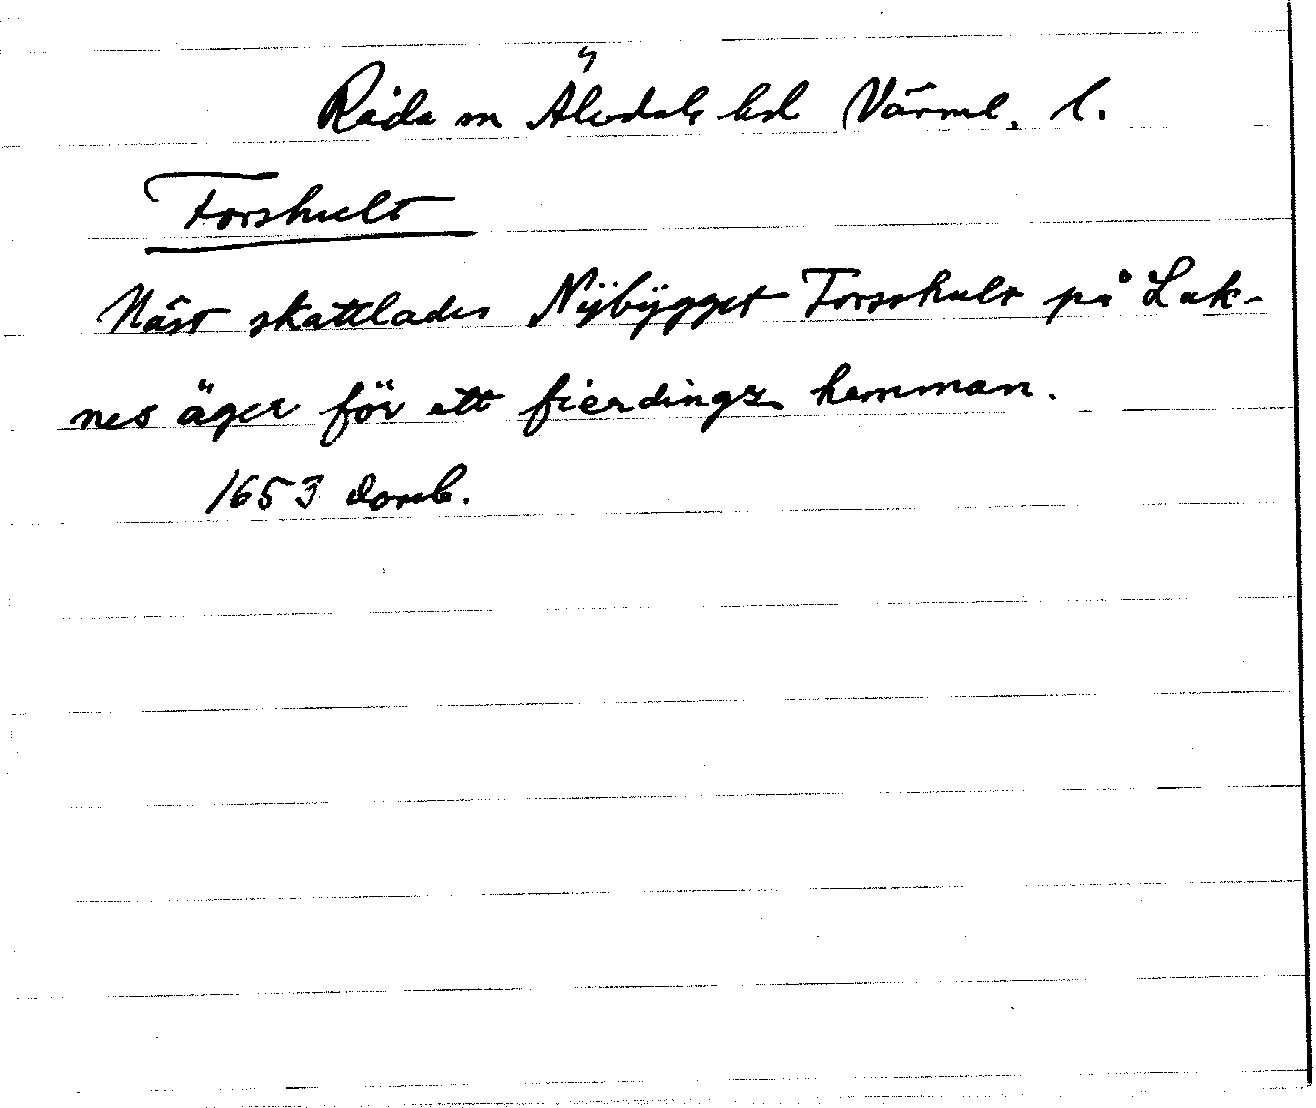 Råda sn Älvdals hd Värml. l.
Forshult
Näst skattlades Nÿbÿgget Forsshult på Lak-
nes äger för ett fierdingz hemman.
1653 domb.